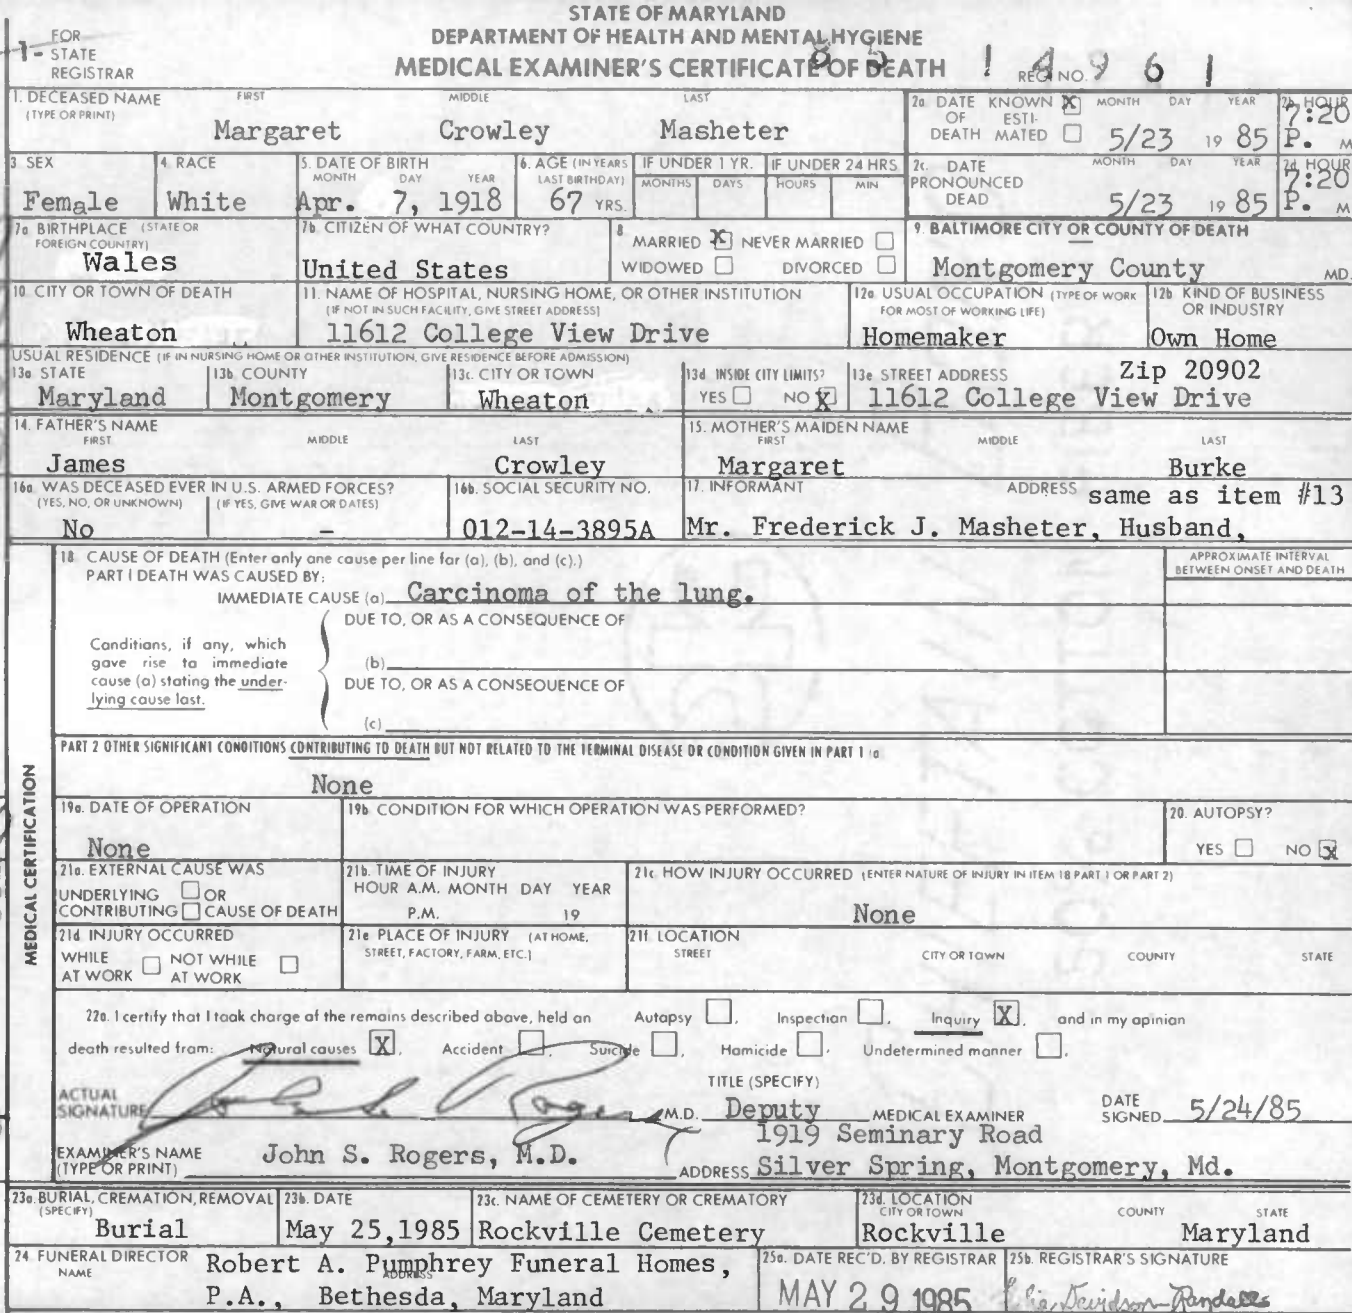 STATE OF MARYLAND
DEPARTMENT OF HEALTH AND MENTAL HYGIENE
MEDICAL EXAMINER'S CERTIFICATE OF DEATH
1- FOR STATE REGISTRAR
85 14961
REG NO.
1. DECEASED NAME (TYPE OR PRINT) FIRST MIDDLE LAST
Margaret Crowley Masheter
2a. DATE OF DEATH KNOWN X ESTIMATED MONTH DAY YEAR
5/23 19 85
2b. HOUR 7:20 P. M
3. SEX Female
4. RACE White
5. DATE OF BIRTH MONTH DAY YEAR
Apr. 7, 1918
6. AGE (IN YEARS LAST BIRTHDAY)
67 YRS.
IF UNDER 1 YR. MONTHS DAYS
IF UNDER 24 HRS HOURS MIN
2c. DATE PRONOUNCED DEAD MONTH DAY YEAR
5/23 19 85
2d. HOUR 7:20 P. M
7a. BIRTHPLACE (STATE OR FOREIGN COUNTRY)
Wales
7b. CITIZEN OF WHAT COUNTRY?
United States
8. MARRIED X NEVER MARRIED
WIDOWED DIVORCED
9. BALTIMORE CITY OR COUNTY OF DEATH
Montgomery County MD.
10. CITY OR TOWN OF DEATH
Wheaton
11. NAME OF HOSPITAL, NURSING HOME, OR OTHER INSTITUTION
(IF NOT IN SUCH FACILITY, GIVE STREET ADDRESS)
11612 College View Drive
12a. USUAL OCCUPATION (TYPE OF WORK FOR MOST OF WORKING LIFE)
Homemaker
12b. KIND OF BUSINESS OR INDUSTRY
Own Home
USUAL RESIDENCE (IF IN NURSING HOME OR OTHER INSTITUTION, GIVE RESIDENCE BEFORE ADMISSION)
13a. STATE Maryland
13b. COUNTY Montgomery
13c. CITY OR TOWN Wheaton
13d. INSIDE CITY LIMITS? YES NO X
13e. STREET ADDRESS Zip 20902
11612 College View Drive
14. FATHER'S NAME FIRST MIDDLE LAST
James Crowley
15. MOTHER'S MAIDEN NAME FIRST MIDDLE LAST
Margaret Burke
16a. WAS DECEASED EVER IN U.S. ARMED FORCES?
(YES, NO, OR UNKNOWN) (IF YES, GIVE WAR OR DATES)
No –
16b. SOCIAL SECURITY NO.
012-14-3895A
17. INFORMANT ADDRESS same as item #13
Mr. Frederick J. Masheter, Husband,
MEDICAL CERTIFICATION
18. CAUSE OF DEATH (Enter only one cause per line for (a), (b), and (c).)
PART I DEATH WAS CAUSED BY:
IMMEDIATE CAUSE (a) Carcinoma of the lung.
APPROXIMATE INTERVAL BETWEEN ONSET AND DEATH
DUE TO, OR AS A CONSEQUENCE OF
Conditions, if any, which gave rise to immediate cause (a) stating the underlying cause last.
(b)
DUE TO, OR AS A CONSEQUENCE OF
(c)
PART 2 OTHER SIGNIFICANT CONDITIONS CONTRIBUTING TO DEATH BUT NOT RELATED TO THE TERMINAL DISEASE OR CONDITION GIVEN IN PART 1 (a
None
19a. DATE OF OPERATION
None
19b. CONDITION FOR WHICH OPERATION WAS PERFORMED?
20. AUTOPSY?
YES NO X
21a. EXTERNAL CAUSE WAS
UNDERLYING OR
CONTRIBUTING CAUSE OF DEATH
21b. TIME OF INJURY
HOUR A.M. MONTH DAY YEAR
P.M. 19
21c. HOW INJURY OCCURRED (ENTER NATURE OF INJURY IN ITEM 18 PART 1 OR PART 2)
None
21d. INJURY OCCURRED
WHILE AT WORK NOT WHILE AT WORK
21e. PLACE OF INJURY (AT HOME, STREET, FACTORY, FARM, ETC.)
21f. LOCATION
STREET CITY OR TOWN COUNTY STATE
22a. I certify that I took charge of the remains described above, held an Autopsy , Inspection , Inquiry X , and in my opinion
death resulted from: Natural causes X , Accident , Suicide , Homicide , Undetermined manner .
ACTUAL SIGNATURE John S. Rogers M.D.
TITLE (SPECIFY)
Deputy MEDICAL EXAMINER
DATE SIGNED 5/24/85
EXAMINER'S NAME (TYPE OR PRINT) John S. Rogers, M.D.
1919 Seminary Road
ADDRESS Silver Spring, Montgomery, Md.
23a. BURIAL, CREMATION, REMOVAL (SPECIFY)
Burial
23b. DATE
May 25,1985
23c. NAME OF CEMETERY OR CREMATORY
Rockville Cemetery
23d. LOCATION CITY OR TOWN COUNTY STATE
Rockville Maryland
24. FUNERAL DIRECTOR NAME Robert A. Pumphrey Funeral Homes,
ADDRESS
P.A., Bethesda, Maryland
25a. DATE REC'D. BY REGISTRAR
MAY 29 1985
25b. REGISTRAR'S SIGNATURE
Davidson-Randall